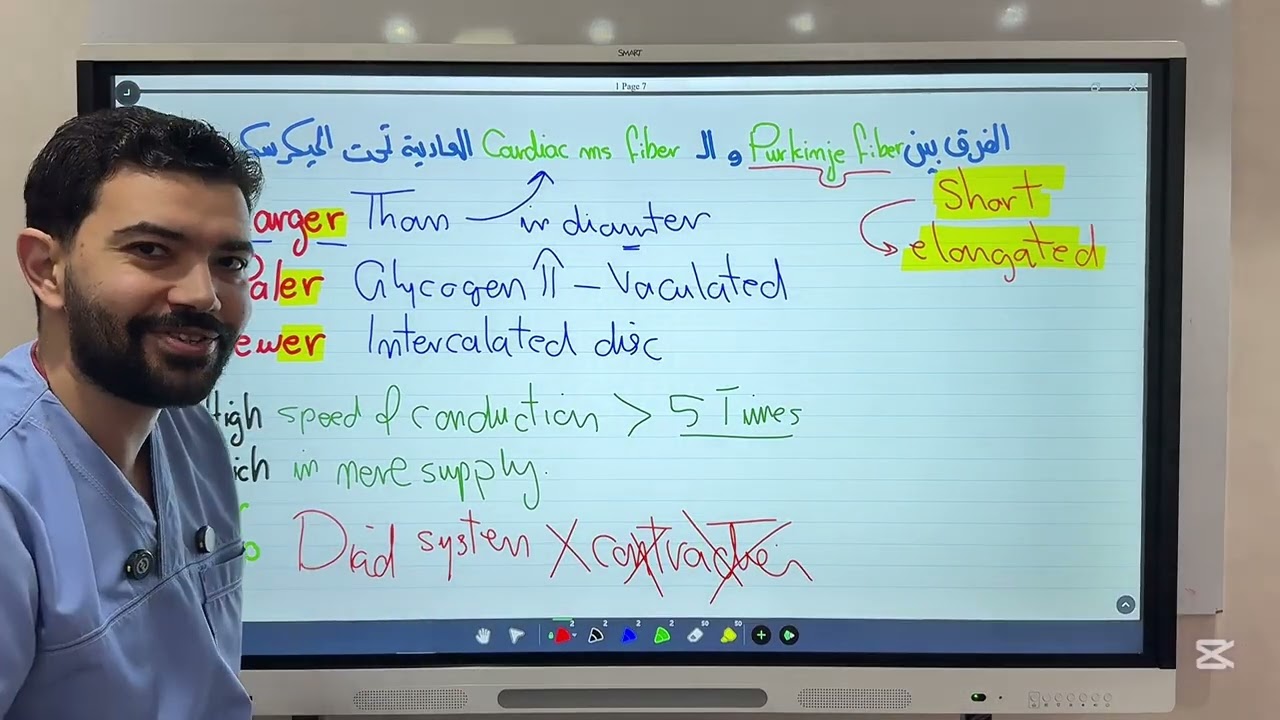 SMART
1 Page 7
الفرق بين Purkimje fiber و الـ Cardiac ms fiber العادية تحت الميكرسك
Short
arger Than in diamter
elongated
Paler Glycogen ⇑ - Vaculated
ewer Intercalated disc
High speed of conduction > 5 Times
ich in nerve supply.
o Diad system X contraction